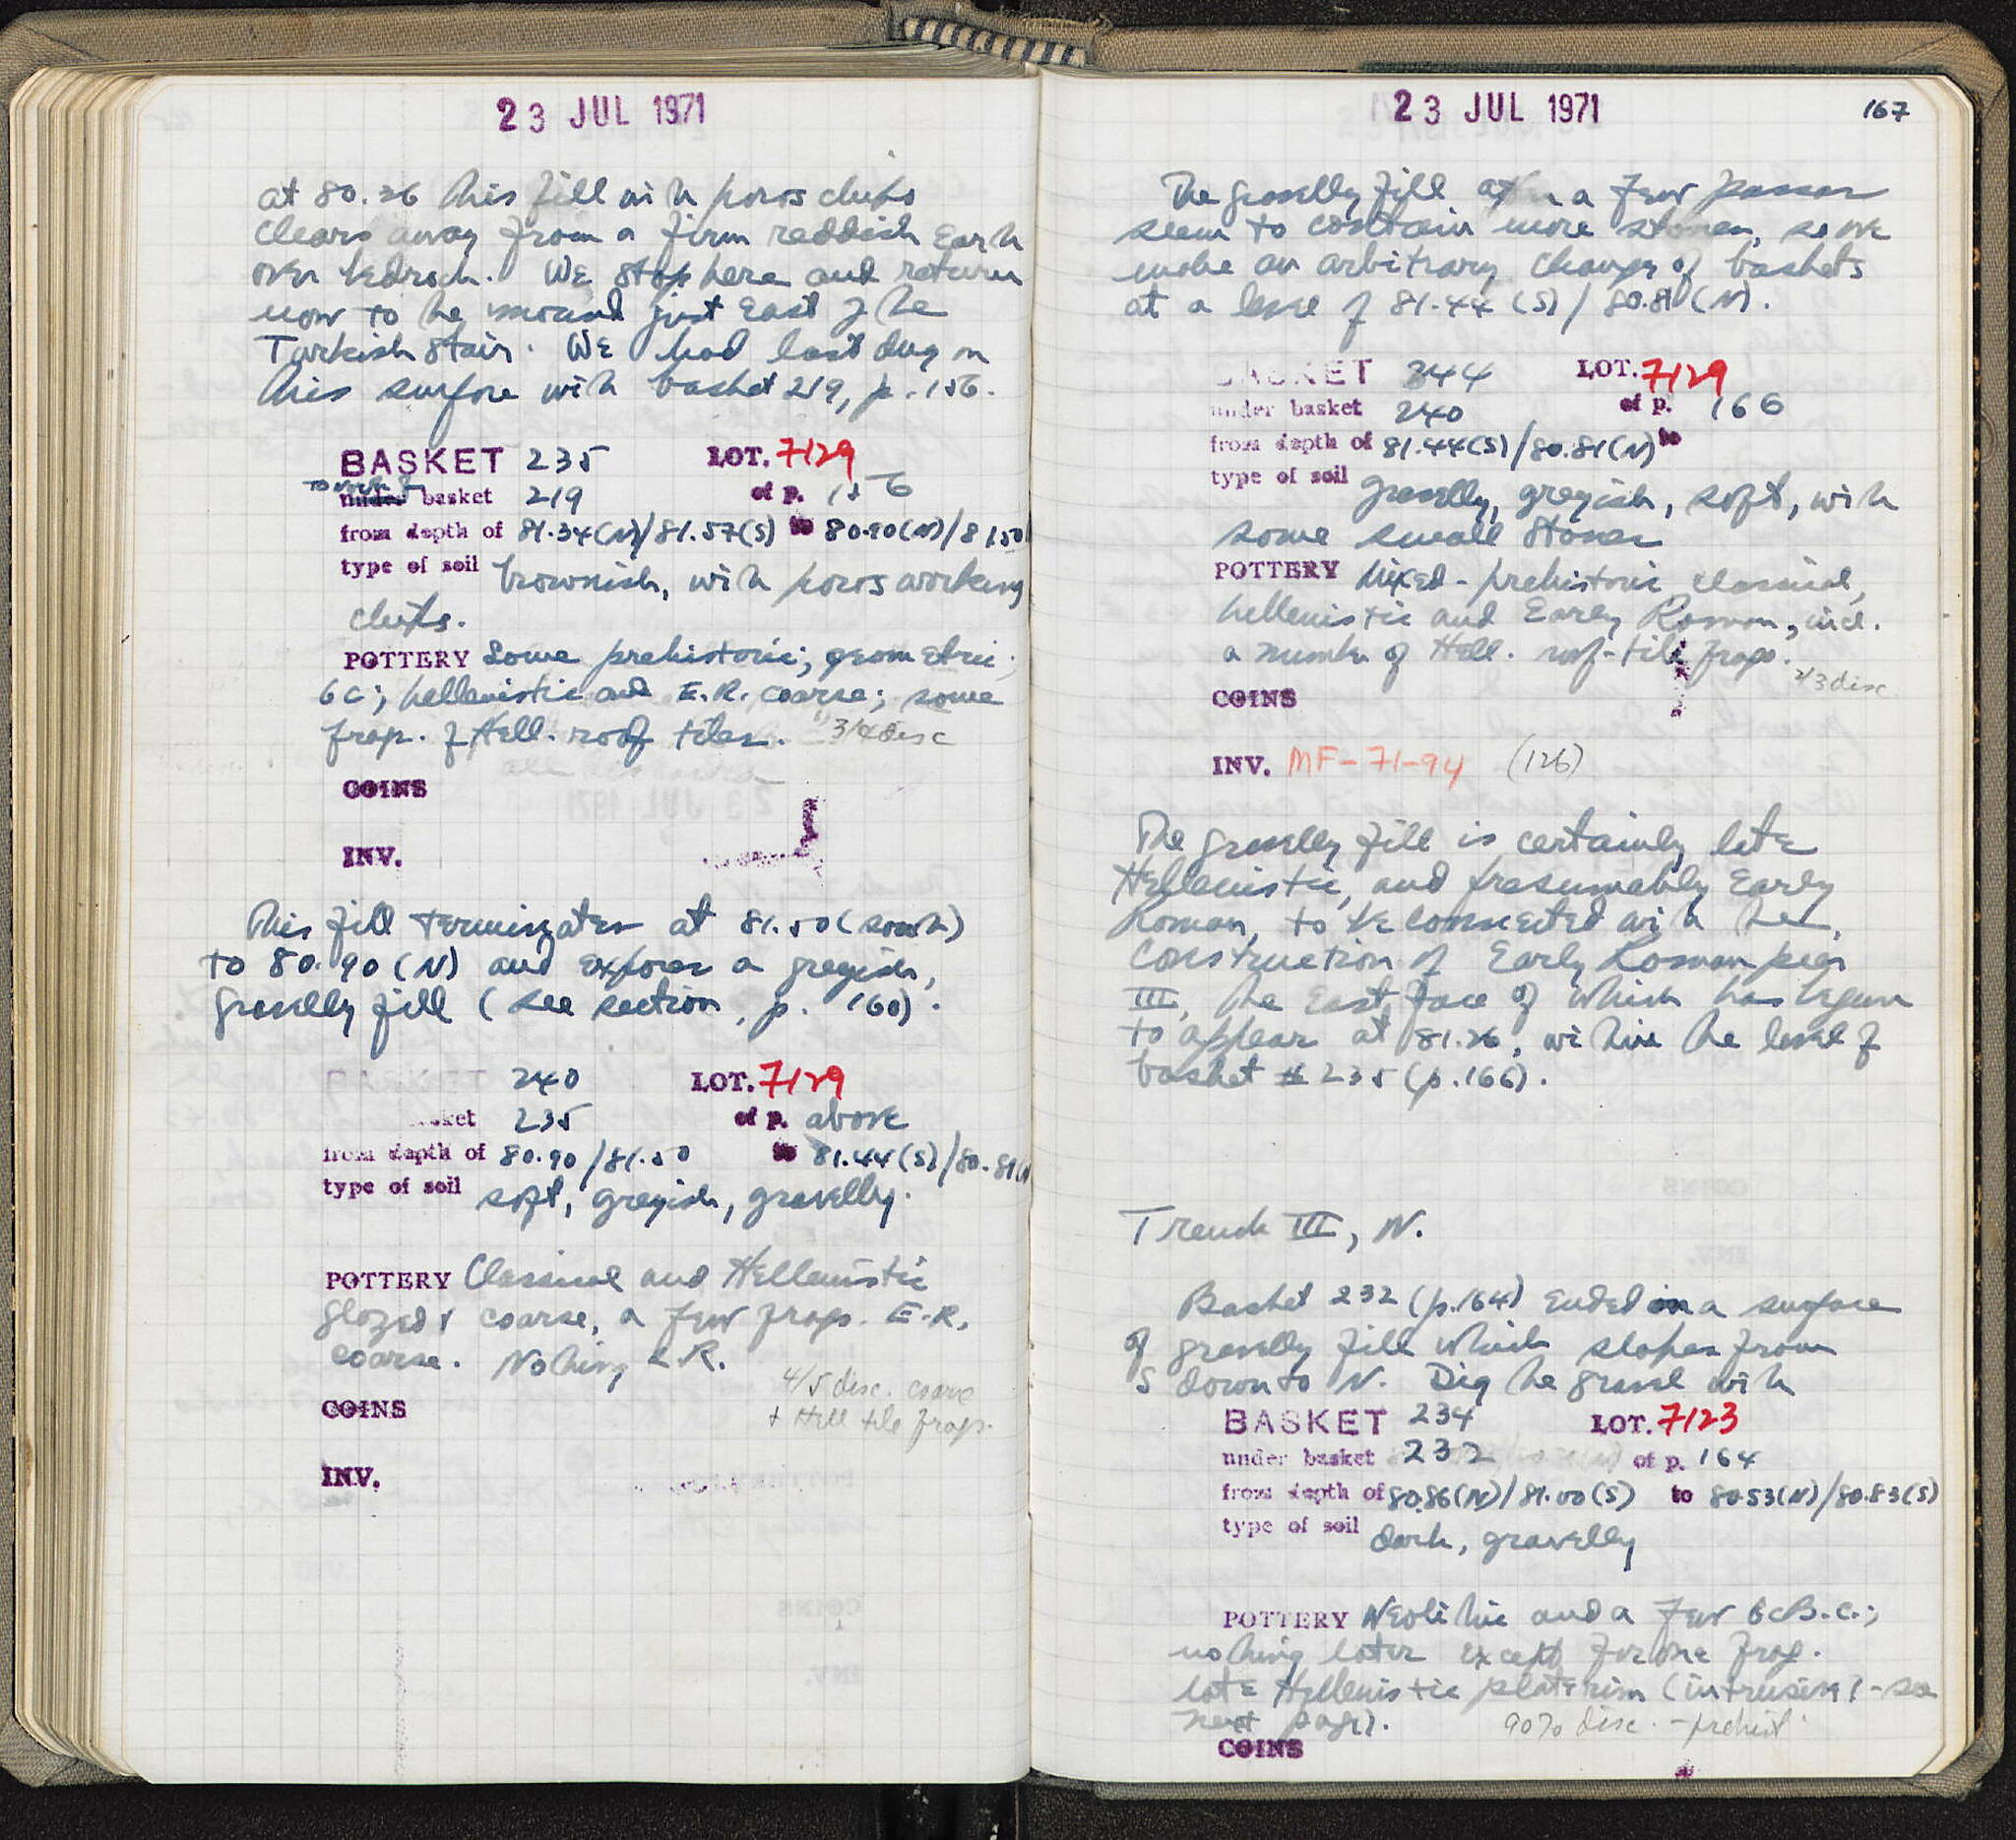 23 JUL 1971
at 80.26 this fill with poros chips
clears away from a firm reddish Earth
over bedrock. We stop here and return
now to the mound just East of the
Turkish Stair. We had last dug on
this surface with basket 219, p. 156.
BASKET 235 LOT. 7129
to north of
basket 219 of p. 156
from depth of 81.34(N)/81.57(S) to 80.90(N)/81.50
type of soil brownish, with poros working
chips.
POTTERY Some prehistoric; geometric;
6C; hellenistic and E.R. coarse; some
frag. of Hell. roof tiles. 3/4 disc
COINS
INV.
This fill terminates at 81.50 (south)
to 80.90 (N) and exposes a greyish,
gravelly fill (see section, p. 160).
BASKET 240 LOT. 7129
basket 235 of p. above
from depth of 80.90/81.50 to 81.44(S)/80.81(N
type of soil soft, greyish, gravelly.
POTTERY Classical and Hellenistic
glazed & coarse, a few frags. E.R.
coarse. Nothing L.R.
4/5 disc. coarse
+ Hell tile frags.
COINS
INV.
23 JUL 1971 167
The gravelly fill after a few passes
seem to contain more stones, so we
make an arbitrary change of baskets
at a level of 81.44 (S)/80.81(N).
BASKET 244 LOT. 7129
under basket 240 of p. 166
from depth of 81.44(S)/80.81(N) to
type of soil gravelly, greyish, soft, with
some small stones
POTTERY Mixed - prehistoric classical,
hellenistic and Early Roman, incl.
a number of Hell. roof-tile frags.
2/3 disc
COINS
INV. MF-71-94 (126)
The gravelly fill is certainly late
Hellenistic, and presumably Early
Roman, to be connected with the
construction of Early Roman pier
III, the East face of which has begun
to appear at 81.26, within the level of
basket # 235 (p. 166).
Trench III, N.
Basket 232 (p. 164) Ended on a surface
of gravelly fill which slopes from
S down to N. Dig the gravel with
BASKET 234 LOT. 7123
under basket 232 of p. 164
from depth of 80.86(N)/81.00(S) to 80.53(N)/80.83(S)
type of soil dark, gravelly
POTTERY Neolithic and a few 6c B.C.;
nothing later except for one frag.
late Hellenistic plate rim (intrusive? - see
next page).
90% disc. - prehist.
COINS